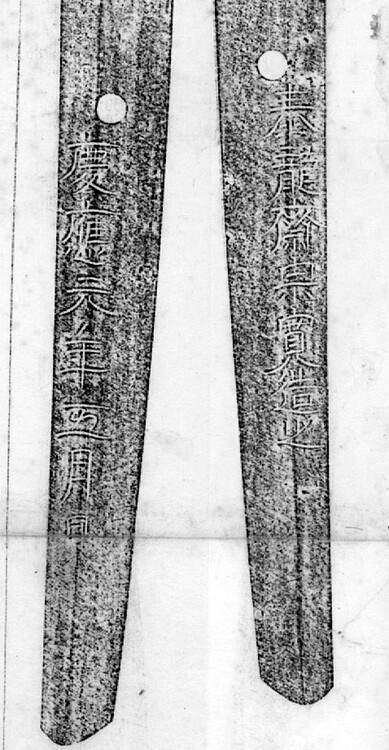 泰龍齋宗寛造之
慶應元年五月日